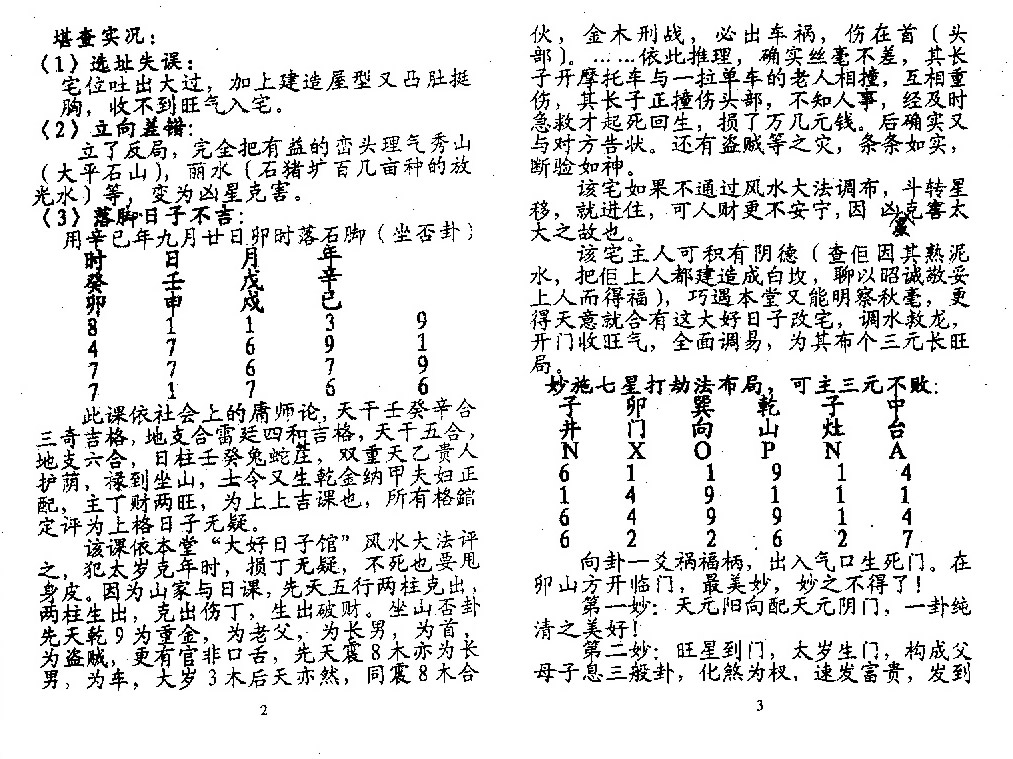 堪查实况：
（1）选址失误：
宅位吐出大过，加上建造屋型又凸肚挺
胸，收不到旺气入宅。
（2）立向差错：
立了反局，完全把有益的峦头理气秀山
（大平石山），丽水（石猪圹百几亩种的放
光水）等，变为凶星克害。
（3）落脚日子不吉：
用辛已年九月廿日卯时落石脚（坐否卦）
时 日 月 年
癸 壬 戊 辛
卯 申 戍 已
8 1 1 3 9
4 7 6 9 1
7 7 6 7 9
7 1 7 6 6
此课依社会上的庸师论，天干壬癸辛合
三奇吉格，地支合雷廷四和吉格，天干五合，
地支六合，日柱壬癸兔蛇茳，双重天乙贵人
护荫，禄到坐山，士令又生乾金纳甲夫妇正
配，主丁财两旺，为上上吉课也，所有格館
定评为上格日子无疑。
该课依本堂“大好日子馆”风水大法评
之，犯太岁克年时，损丁无疑，不死也要甩
身皮。因为山家与日课，先天五行两柱克出，
两柱生出，克出伤丁，生出破财。坐山否卦
先天乾9为重金，为老父，为长男，为首，
为盗贼，更有官非口舌，先天震8木亦为长
男，为车，大岁3木后天亦然，同震8木合
2
伙，金木刑战，必出车祸，伤在首（头
部）。……依此推理，确实丝毫不差，其长
子开摩托车与一拉单车的老人相撞，互相重
伤，其长子正撞伤头部，不知人事，经及时
急救才起死回生，损了万几元钱。后确实又
与对方告状。还有盗贼等之灾，条条如实，
断验如神。
该宅如果不通过风水大法调布，斗转星
移，就进住，可人财更不安宁，因 凶克害太
大之故也。
该宅主人可积有阴德（查佢因其熟泥
水，把佢上人都建造成白坟，聊以昭诚敬妥
上人而得福），巧遇本堂又能明察秋毫，更
得天意就合有这大好日子改宅，调水救龙，
开门收旺气，全面调易，为其布个三元长旺
局。
妙施七星打劫法布局，可主三元不败：
子 卯 巽 乾 子 中
井 门 向 山 灶 台
N X O P N A
6 1 1 9 1 4
1 4 9 1 1 1
6 4 9 9 1 4
6 2 2 6 2 7
向卦一爻祸福柄，出入气口生死门。在
卯山方开临门，最美妙，妙之不得了！
第一妙：天元阳向配天元阴门，一卦纯
清之美好！
第二妙：旺星到门，太岁生门，构成父
母子息三般卦，化煞为权，速发富贵，发到
3